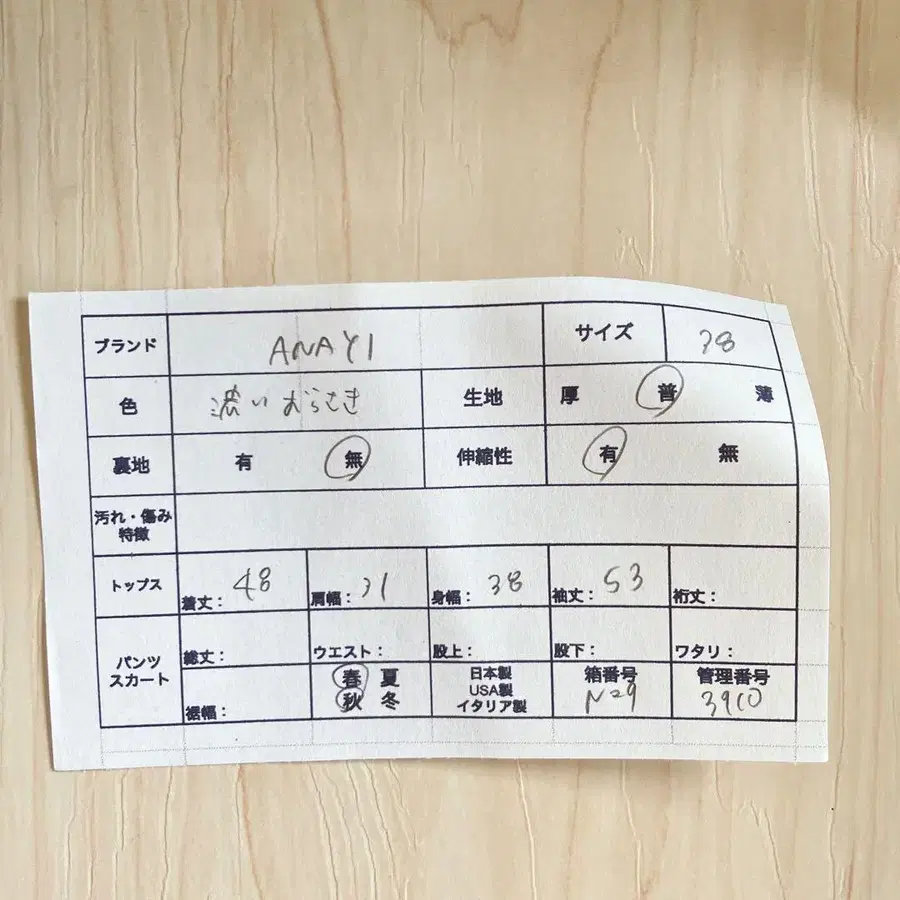 ブランド ANAYI サイズ 38
色 濃いむらさき 生地 厚 普 薄
裏地 有 無 伸縮性 有 無
汚れ・傷み
特徴
トップス 着丈: 48 肩幅: 31 身幅: 38 袖丈: 53 裄丈:
パンツ
スカート
総丈: ウエスト: 股上: 股下: ワタリ:
裾幅:
春 夏
秋 冬
日本製
USA製
イタリア製
箱番号
N29
管理番号
3910